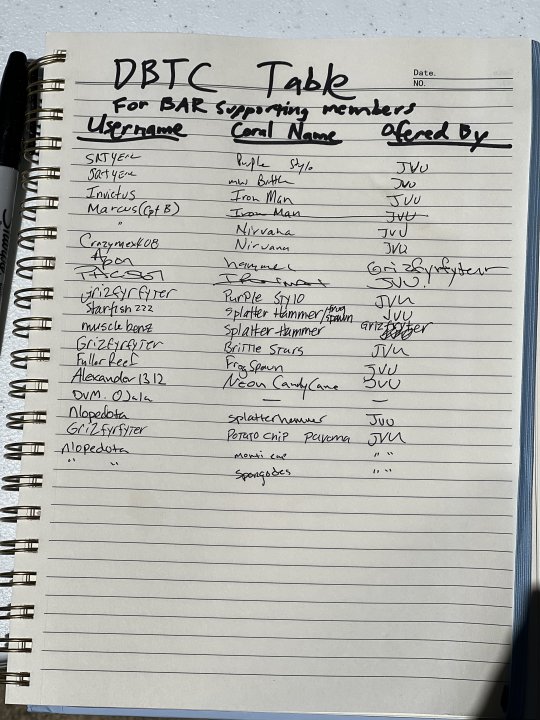 Date.
NO.
DBTC Table
For BAR Supporting members
Username Coral Name Offered By
SATYEN Purple Stylo JVU
SATYEN Bottle JVU
Invictus Iron Man JVU
Marcus (Cpt B) Iron Man JVU
" Nirvana JVU
CrazymexKOB Nirvana JVU
Apon hammer Grizfyrfyter
JVU
grizfyrfyter Purple Stylo JVU
Starfish222 Splatter Hammer/frog spawn JVU
musclebenz Splatter Hammer
Grizfyrfyter Brittle Stars JVU
FullerReef FrogSpawn JVU
Alexander1312 Neon Candy Cane JVU
DVM. Ojala — —
Nlopedota splatterhammer JVU
Grizfyrfyter Potato Chip pavona JVU
Nlopedota monti cap " "
" " spongodes " "